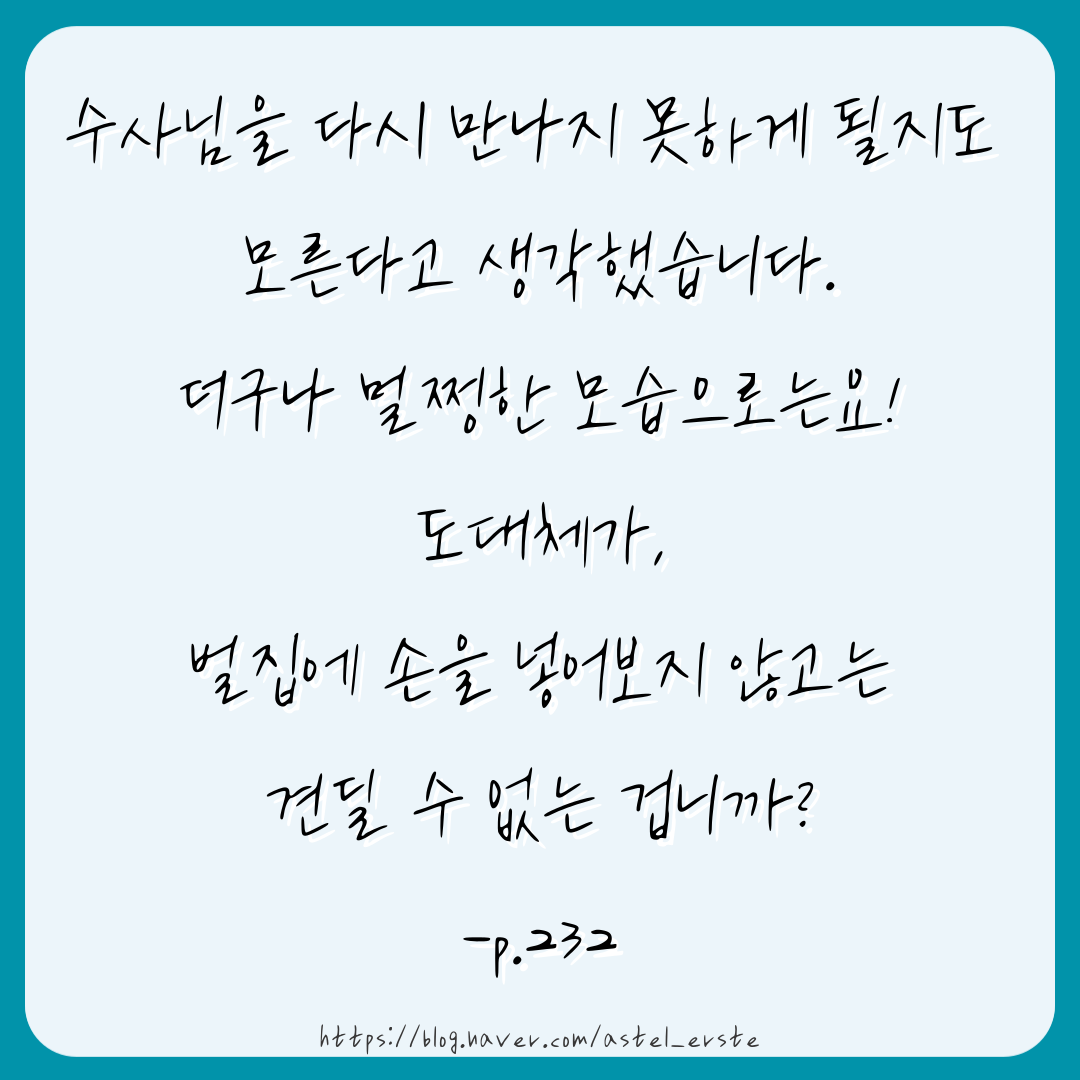 수사님을 다시 만나지 못하게 될지도
모른다고 생각했습니다.
더구나 멀쩡한 모습으로는요!
도대체가,
벌집에 손을 넣어보지 않고는
견딜 수 없는 겁니까?
-p.232
https://blog.naver.com/astel_erste